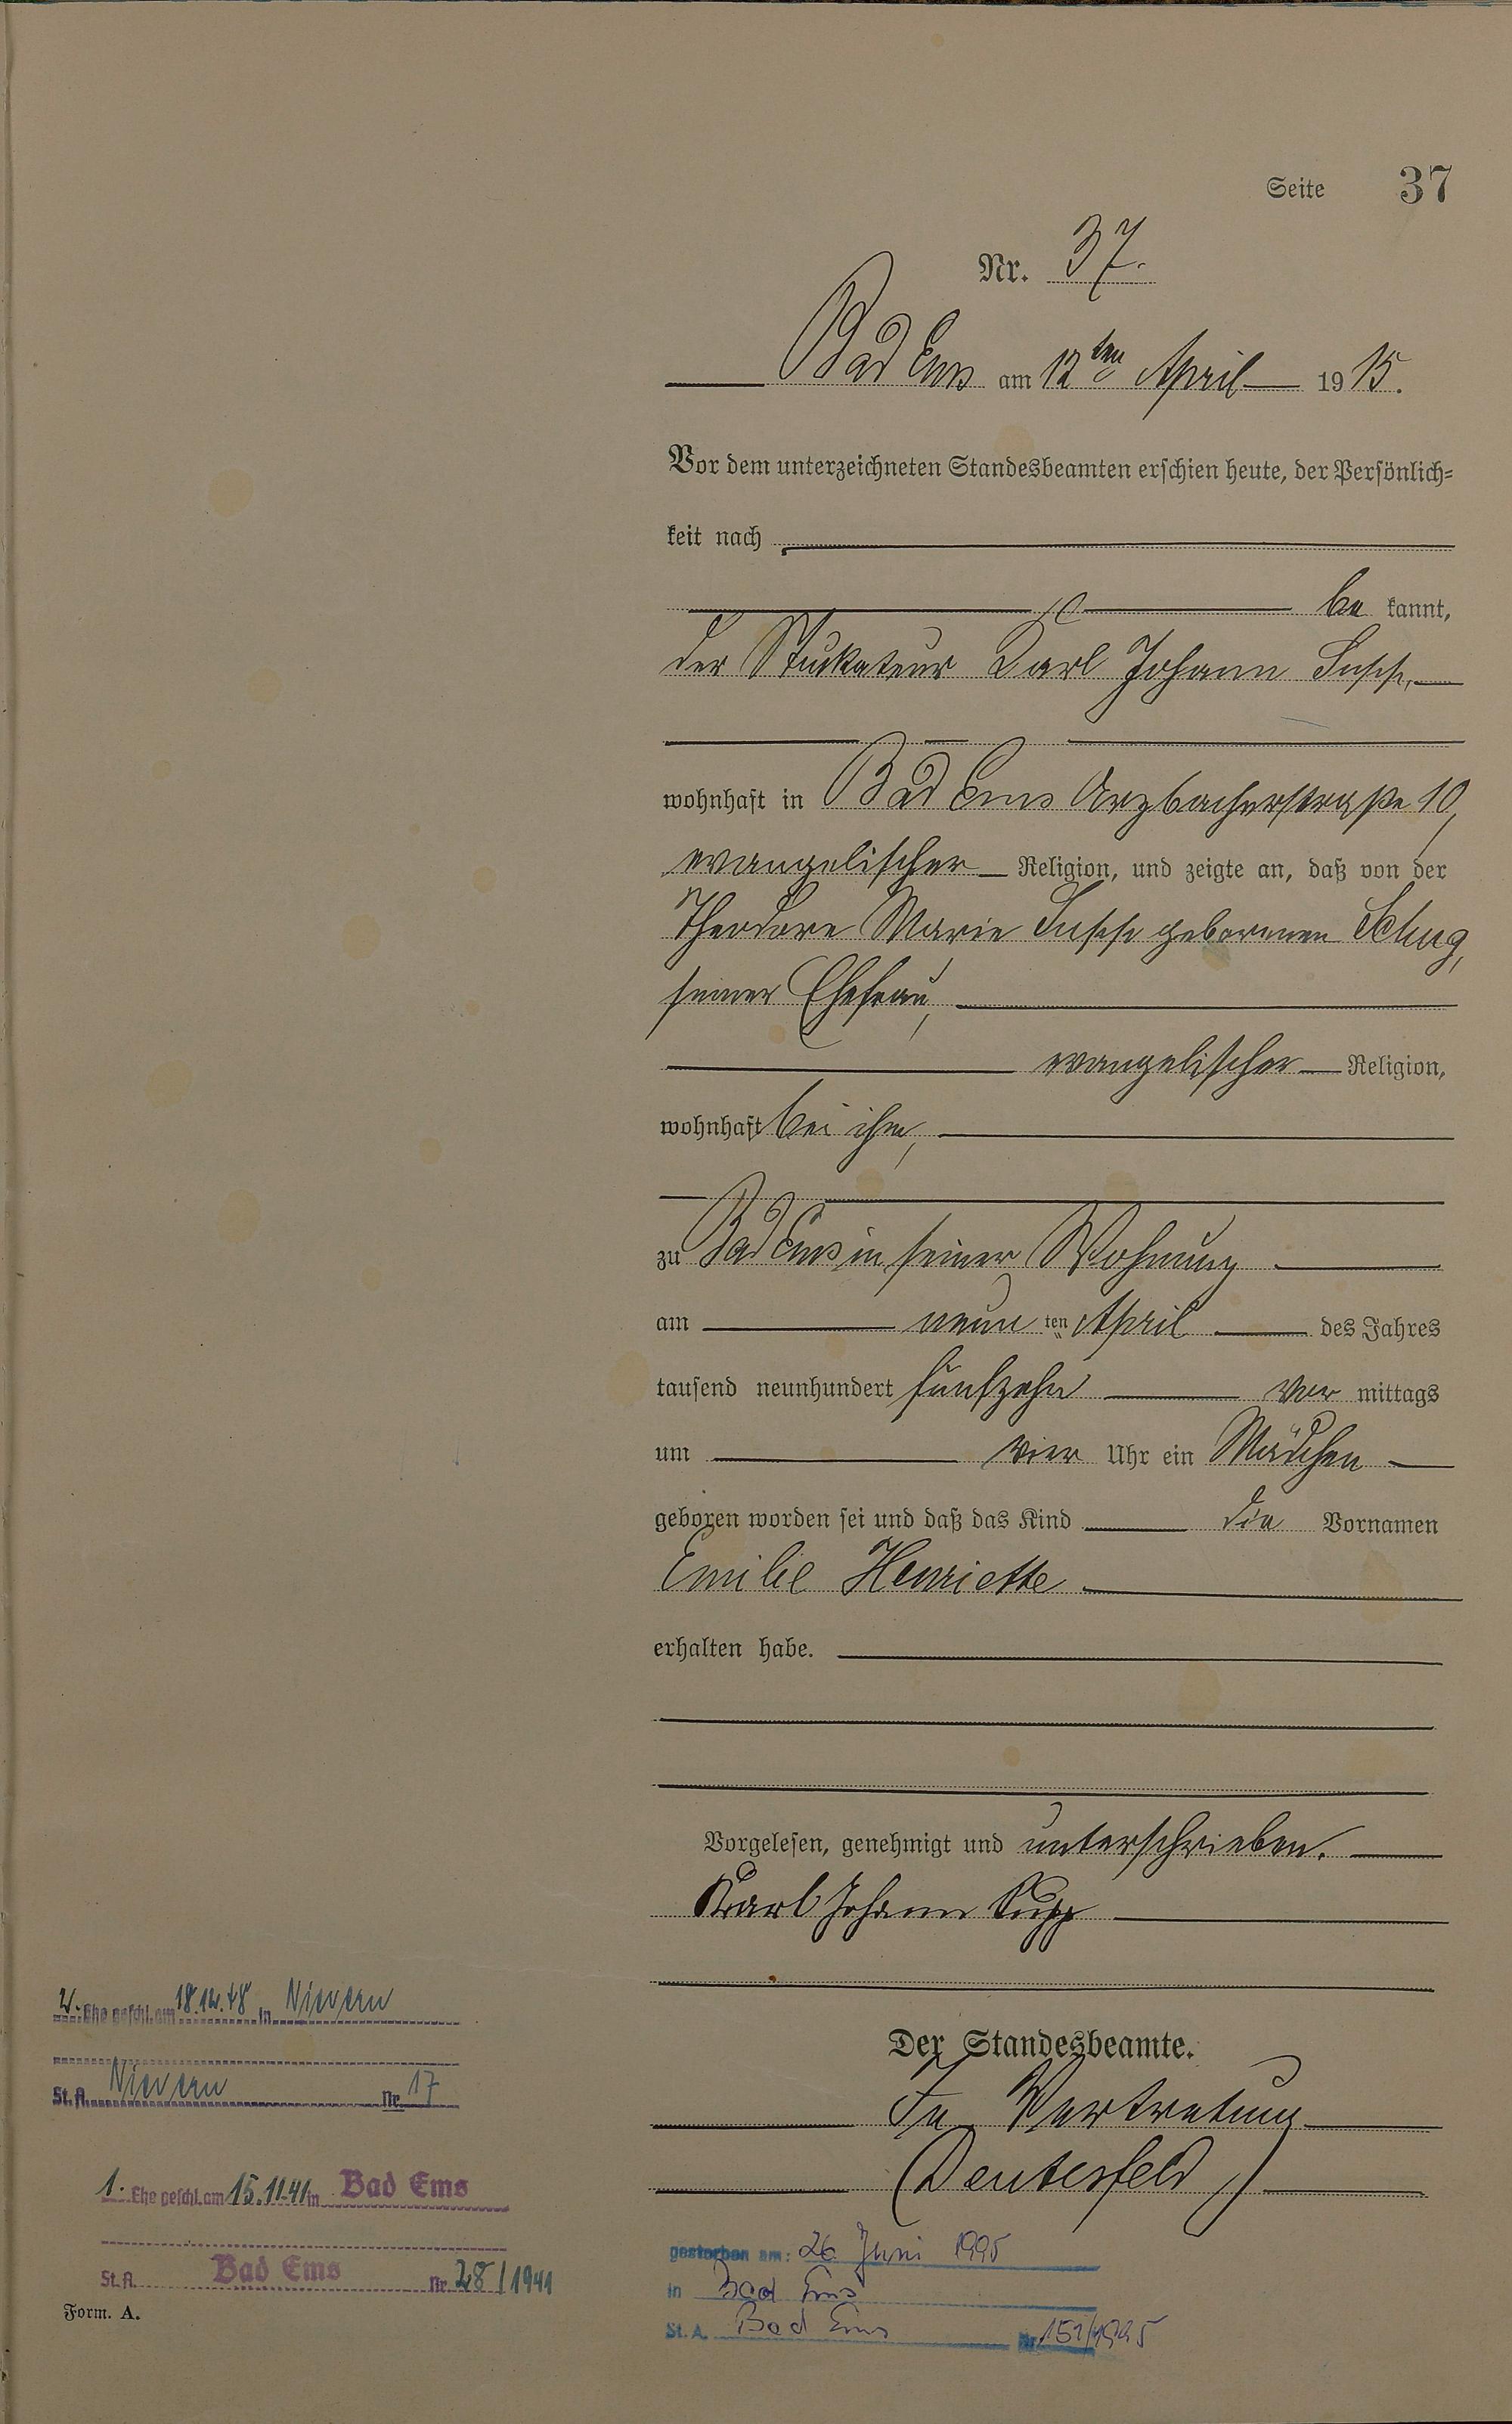 Seite 37
Nr. 37.
Bad Ems am 12ten April 1915.
Vor dem unterzeichneten Standesbeamten erschien heute, der Persönlich-
keit nach
be kannt,
der Stuckateur Karl Johann Supp,
wohnhaft in Bad Ems Arzbacherstraße 10,
evangelischer Religion, und zeigte an, daß von der
Theodore Marie Supp geborenen Schug,
seiner Ehefrau,
evangelischer Religion,
wohnhaft bei ihm,
zu Bad Ems in seiner Wohnung
am neun ten April des Jahres
tausend neunhundert fünfzehn vor mittags
um vier Uhr ein Mädchen
geboren worden sei und daß das Kind die Vornamen
Emilie Henriette
erhalten habe.
Vorgelesen, genehmigt und unterschrieben.
Karl Johann Supp
Der Standesbeamte.
In Vertretung
(Deutesfeld)
2. Ehe geschl. am 18.12.48 in Nievern
St. A. Nievern Nr. 17
1. Ehe geschl. am 15.11.41 in Bad Ems
St. A. Bad Ems Nr. 28/1941
Form. A.
gestorben am: 26. Juni 1995
in Bad Ems
St. A. Bad Ems Nr. 151/1995